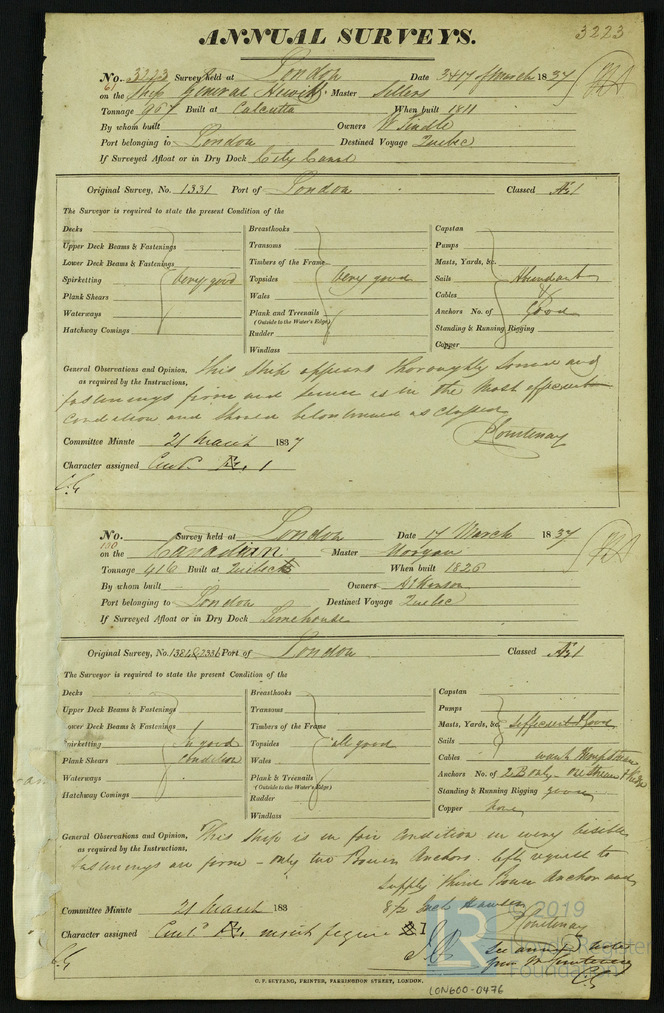 3223
ANNUAL SURVEYS.
No. 3223 Survey held at London Date 3 & 17 of March 1837
61
on the Ship General Hewitt Master Sellers
Tonnage 967 Built at Calcutta When built 1811
By whom built Owners W Tindle
Port belonging to London Destined Voyage Quebec
If Surveyed Afloat or in Dry Dock City Canal
Original Survey, No. 1331 Port of London Classed Æ1
The Surveyor is required to state the present Condition of the
Decks Breasthooks Capstan
Upper Deck Beams & Fastenings Transoms Pumps
Lower Deck Beams & Fastenings Timbers of the Frame Masts, Yards, &c.
Spirketting Very good Topsides Very good Sails Abundant
Plank Shears Wales Cables &
Waterways Plank and Treenails Anchors No. of Good
(Outside to the Water's Edge)
Hatchway Comings Rudder Standing & Running Rigging
Windlass Copper
General Observations and Opinion, This Ship appears thoroughly sound and
as required by the Instructions,
fastenings firm and secure is in the most efficient
condition and should be continued as classed
Courtenay
Committee Minute 21 March 1837
Character assigned Contd. Æ. 1
C.G
No. Survey held at London Date 17 March 1837
100
on the Canadian Master Morgan
Tonnage 416 Built at Quebec When built 1826
By whom built Owners Atkinson
Port belonging to London Destined Voyage Quebec
If Surveyed Afloat or in Dry Dock Limehouse
Original Survey, No. 1381&2336 Port of London Classed Æ1
The Surveyor is required to state the present Condition of the
Decks Breasthooks Capstan
Upper Deck Beams & Fastenings Transoms Pumps
ower Deck Beams & Fastenings Timbers of the Frame Masts, Yards, &c. sufficient & Good
pirketting In good Topsides all good Sails
Plank Shears condition Wales Cables want Hemp stream
Waterways Plank & Treenails Anchors No. of 2 B only one stream & Kedge
(Outside to the Water's Edge)
Hatchway Comings Rudder Standing & Running Rigging good
Windlass Copper
General Observations and Opinion, This Ship is in fair condition in every visible
as required by the Instructions,
fastenings are firm - only two Bower Anchors
supply third Bower Anchor and
8½ Inch Hawser
Courtenay
Committee Minute 21 March 183
Character assigned Contd. Æ. insert figure 1
C.G
C.G
C. F. SEYFANG, PRINTER, FARRINGDON STREET, LONDON.
LON600-0476
LR © 2019
Lloyd's Register
Foundation